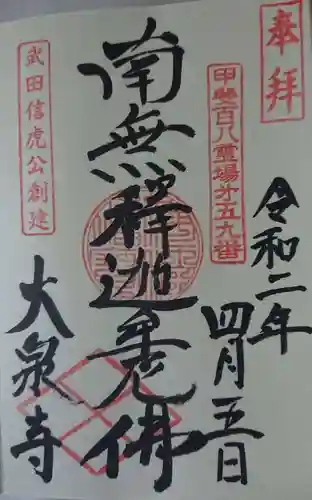 奉拝
甲斐百八霊場第五九番
令和二年
四月五日
南無釋迦牟尼佛
武田信虎公創建
大泉寺